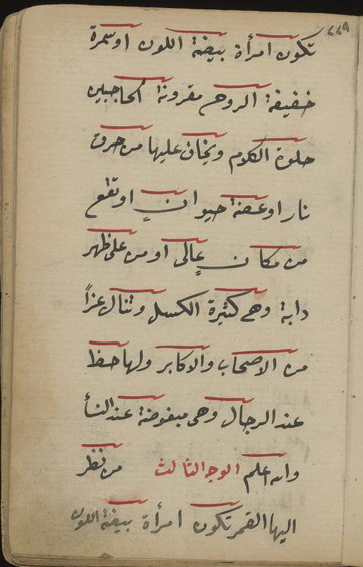 ٦٦٩
تكون امرأة بيضة اللون او سمرة
خفيفة الروح مقرونة الحاجبين
حلوة الكلام ويخاف عليها من حرق
نار او عضة حيوان او تقع
من مكان عالى او من على ظهر
دابة وهى كثيرة الكسل وتنال عزاً
من الاصحاب والاكابر ولها حظ
عند الرجال وهى مبغوضة عند النسأ
والله اعلم الوجه الثالث من نظر
اليها القمر تكون امرأة بيضة اللون